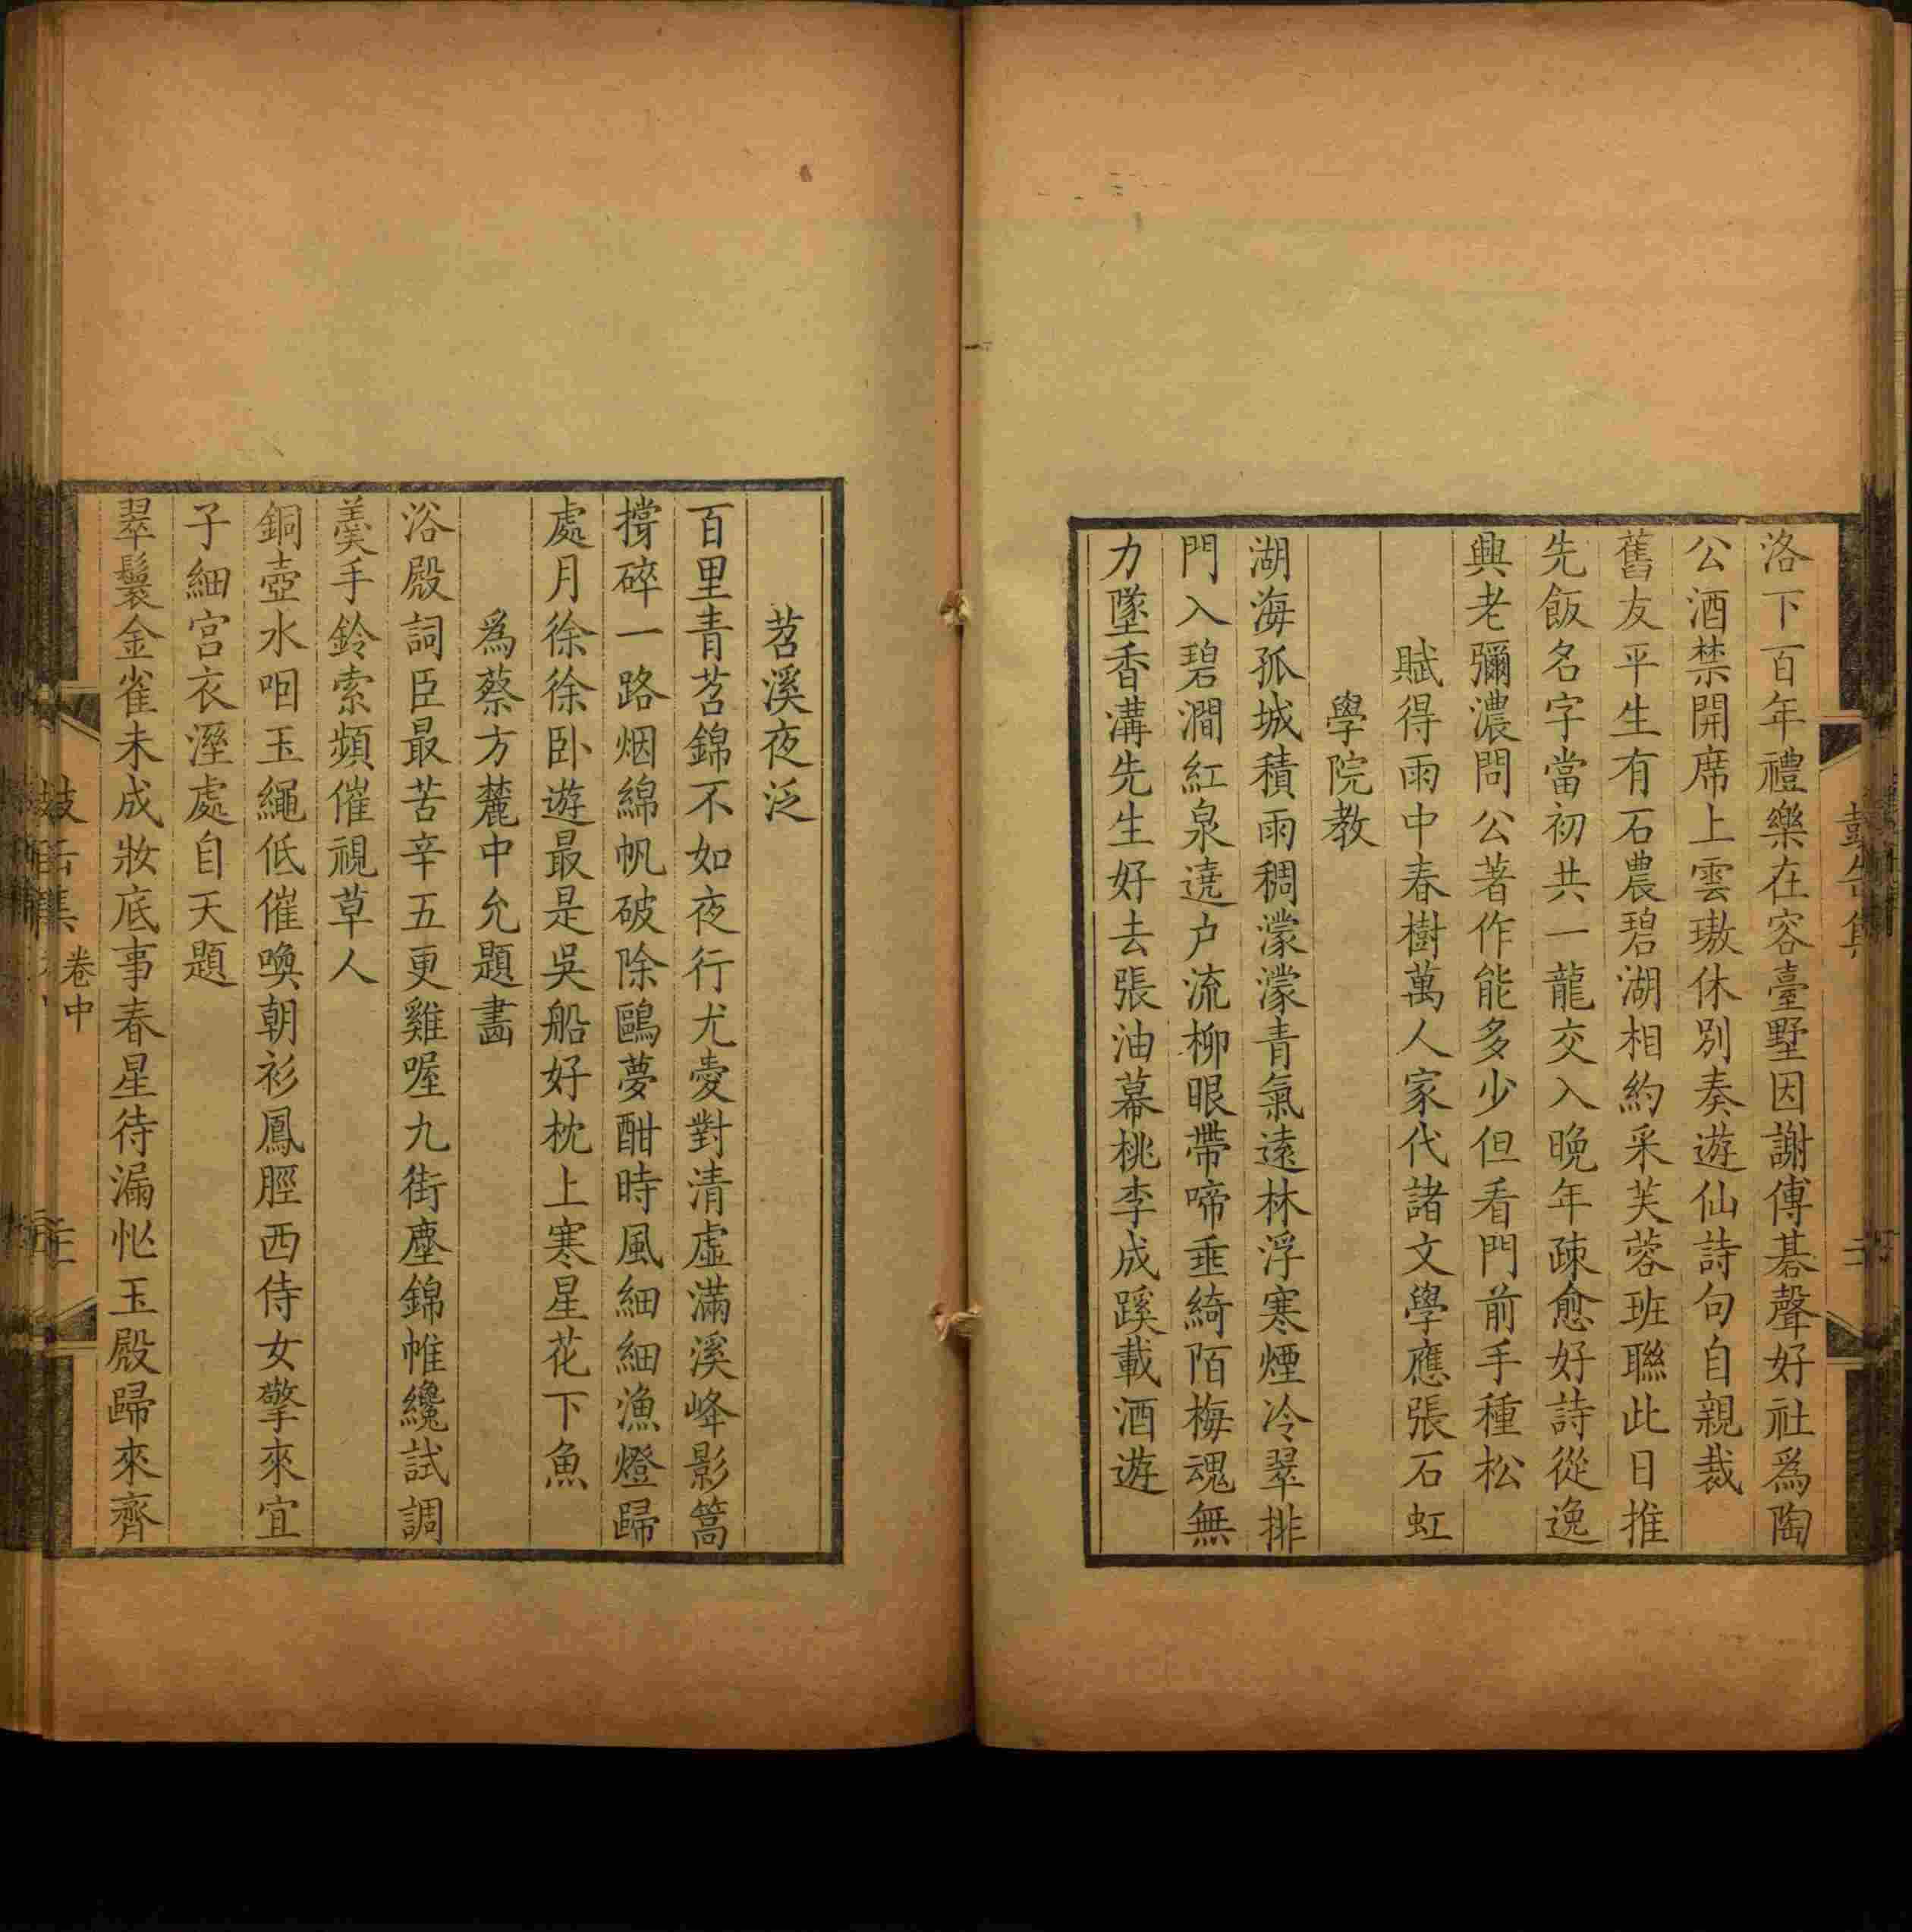 洛下百年禮樂在容臺墅因謝傅碁聲好社爲陶
公酒禁開席上雲璈休別奏遊仙詩句自親裁
舊友平生有石農碧湖相約采芙蓉班聯此日推
先飯名字當初共一龍交入晚年疎愈好詩從逸
興老彌濃問公著作能多少但看門前手種松
賦得雨中春樹萬人家代諸文學應張石虹
學院教
湖海孤城積雨稠濛濛青氣遠林浮寒煙冷翠排
門入碧澗紅泉遶户流柳眼帶啼垂綺陌梅魂無
力墜香溝先生好去張油幕桃李成蹊載酒遊
苕溪夜泛
百里青苕錦不如夜行尤愛對清虛滿溪峰影篙
撐碎一路烟綿帆破除鷗夢酣時風細細漁燈歸
處月徐徐卧遊最是吳船好枕上寒星花下魚
爲蔡方麓中允題畵
浴殿詞臣最苦辛五更雞喔九街塵錦帷纔試調
羹手鈴索頻催視草人
銅壺水咽玉繩低催喚朝衫鳳脛西侍女擎來宜
子細宫衣溼處自天題
翠鬟金雀未成妝底事春星待漏忙玉殿歸來齊
卷中